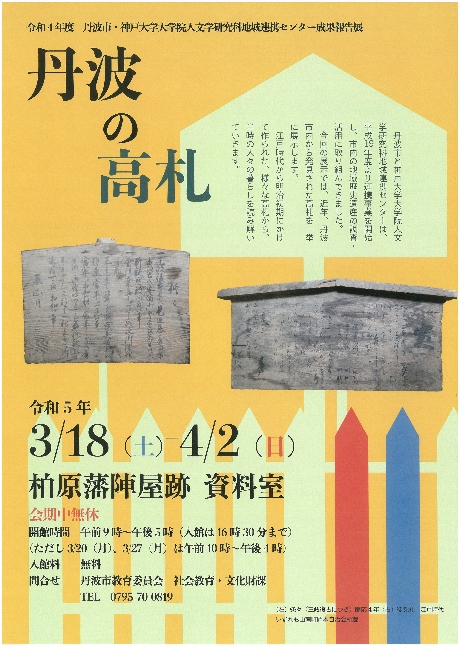 令和4年度 丹波市・神戸大学大学院人文学研究科地域連携センター成果報告展
丹波
の
高札
丹波市と神戸大学大学院人文
学研究科地域連携センターは、
平成19年度より連携事業を開始
し、市内の地域歴史遺産の調査・
活用に取り組んできました。
今回の展示では、近年、丹波
市内から発見された高札を一挙
に展示します。
江戸時代から明治初期にかけ
て作られた、様々な高札から、
当時の人々の暮らしを読み解い
ていきます。
令和5年
3/18（土）-4/2（日）
柏原藩陣屋跡 資料室
会期中無休
開館時間 午前9時～午後5時（入館は16時30分まで）
（ただし 3/20（月）、3/27（月）は午前10時～午後4時）
入館料 無料
問合せ 丹波市教育委員会 社会教育・文化財課
TEL 0795-70-0819